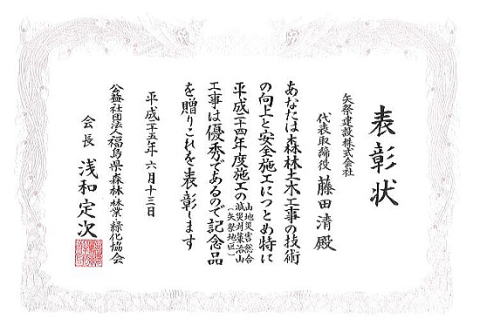 表彰状
矢祭建設株式会社
代表取締役 藤田清殿
あなたは森林土木工事の技術
の向上と安全施工につとめ特に
平成二十四年度施工の山地災害総合減災対策治山(矢祭地区)
工事は優秀であるので記念品
を贈りこれを表彰します
平成二十五年六月十三日
公益社団法人福島県森林・林業・緑化協会
会長 浅和定次